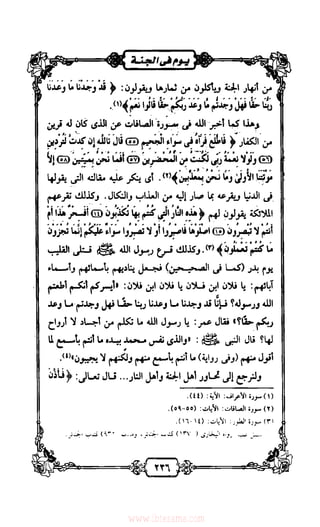 يوم في الجنة
من أنهار الجنة ويأكلون من ثمارها ويقولون: ﴿ قَدْ وَجَدْنَا مَا وَعَدَنَا
رَبُّنَا حَقًّا فَهَلْ وَجَدتُّم مَّا وَعَدَ رَبُّكُمْ حَقًّا قَالُوا نَعَمْ ﴾(١).
وهذا كما أخبر الله فى سورة الصافات عن الذى كان له قرين
من الكفار ﴿ فَاطَّلَعَ فَرَآهُ فِى سَوَاءِ الْجَحِيمِ (٥٥) قَالَ تَاللَّهِ إِن كِدتَّ لَتُرْدِينِ
(٥٦) وَلَوْلَا نِعْمَةُ رَبِّى لَكُنتُ مِنَ الْمُحْضَرِينَ (٥٧) أَفَمَا نَحْنُ بِمَيِّتِينَ (٥٨) إِلَّا
مَوْتَتَنَا الْأُولَى وَمَا نَحْنُ بِمُعَذَّبِينَ ﴾(٢). أى ينكر عليه مقالته التى يقولها
فى الدنيا ويقرعه بما صار إليه من العذاب والنكال. وكذلك تقرعهم
الملائكة يقولون لهم ﴿ هَذِهِ النَّارُ الَّتِى كُنتُم بِهَا تُكَذِّبُونَ (١٤) أَفَسِحْرٌ هَذَا أَمْ
أَنتُمْ لَا تُبْصِرُونَ (١٥) اصْلَوْهَا فَاصْبِرُوا أَوْ لَا تَصْبِرُوا سَوَاءٌ عَلَيْكُمْ إِنَّمَا تُجْزَوْنَ
مَا كُنتُمْ تَعْمَلُونَ ﴾(٣). وكذلك قرع رسول الله ﷺ قتلى القليب
يوم بدر (كما فى الصحيحين) فجعل يناديهم بأسمائهم وأسماء
آبائهم: يا فلان ابن فلان يا فلان ابن فلان: «أيسركم أنكم أطعتم
الله ورسوله؟ فإنا قد وجدنا ما وعدنا ربنا حقا فهل وجدتم ما وعد
ربكم حقا؟» فقال عمر: يا رسول الله ما تكلم من أجساد لا أرواح
لها؟ قال النبى ﷺ: «والذى نفس محمد بيده ما أنتم بأسمع لما
أقول منهم (وفى رواية) ما أنتم بأسمع منهم ولكنهم لا يجيبون»(٤).
ولنرجع إلى تحاور أهل الجنة وأهل النار... قال تعالى: ﴿ فَأَذَّنَ
(١) سورة الأعراف: الآية: (٤٤).
(٢) سورة الصافات: الآيات: (٥٥-٥٩).
(٣) سورة الطور: الآيات: (١٤-١٦).
رواه البخارى
٢٣٦